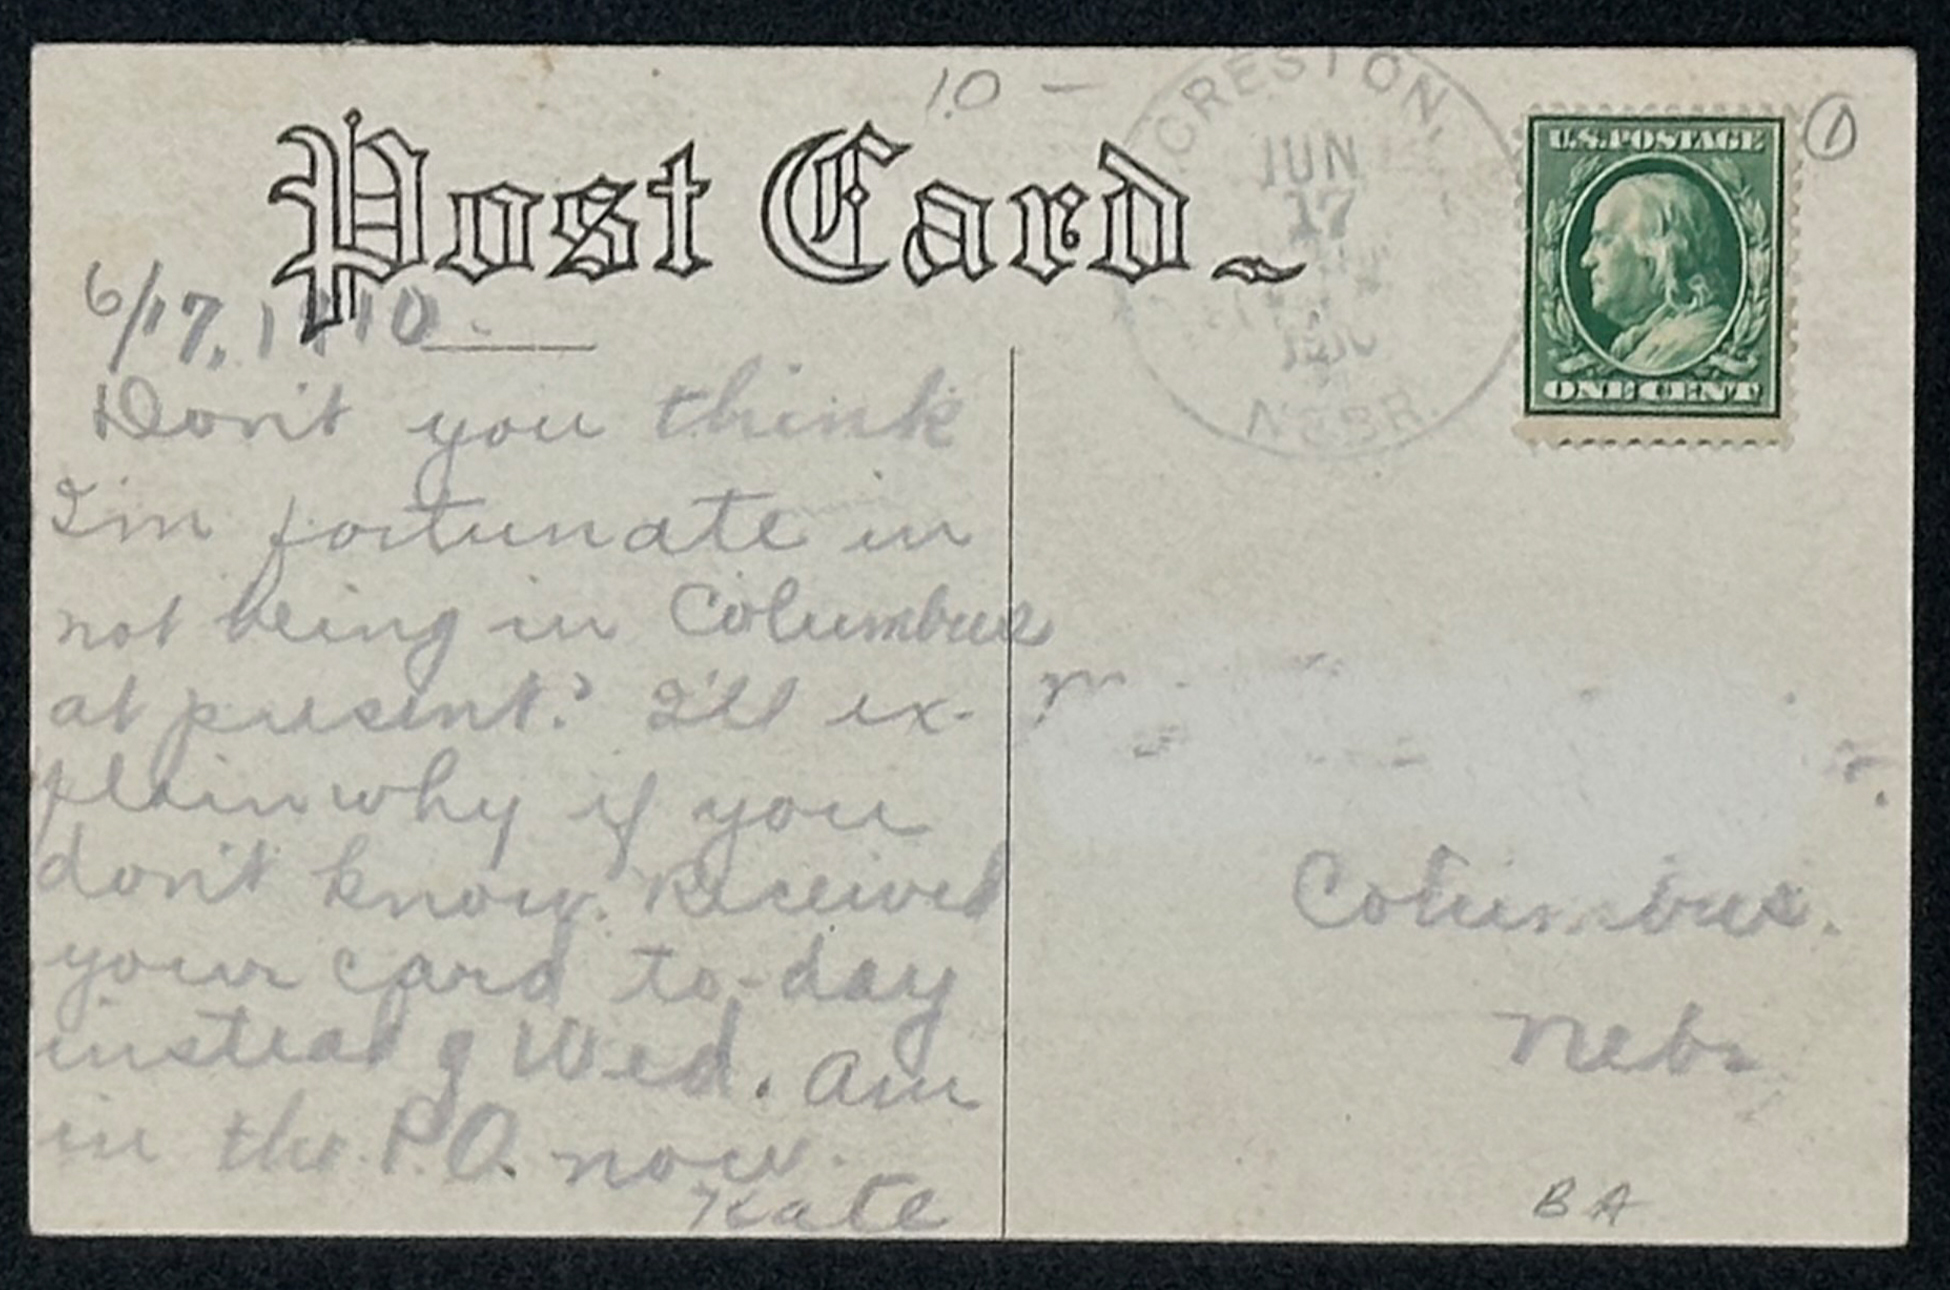 10 —
CRESTON,
JUN
17
1910
NEBR.
U.S. POSTAGE
ONE CENT
1
Post Card
6/17, 1910
Don't you think
I'm fortunate in
not being in Columbus
at present? I'll ex-
plain why if you
don't know. Received
your card to-day
instead of Wed. Am
in the P.O. now.
Kate
Columbus.
Nebr
BA